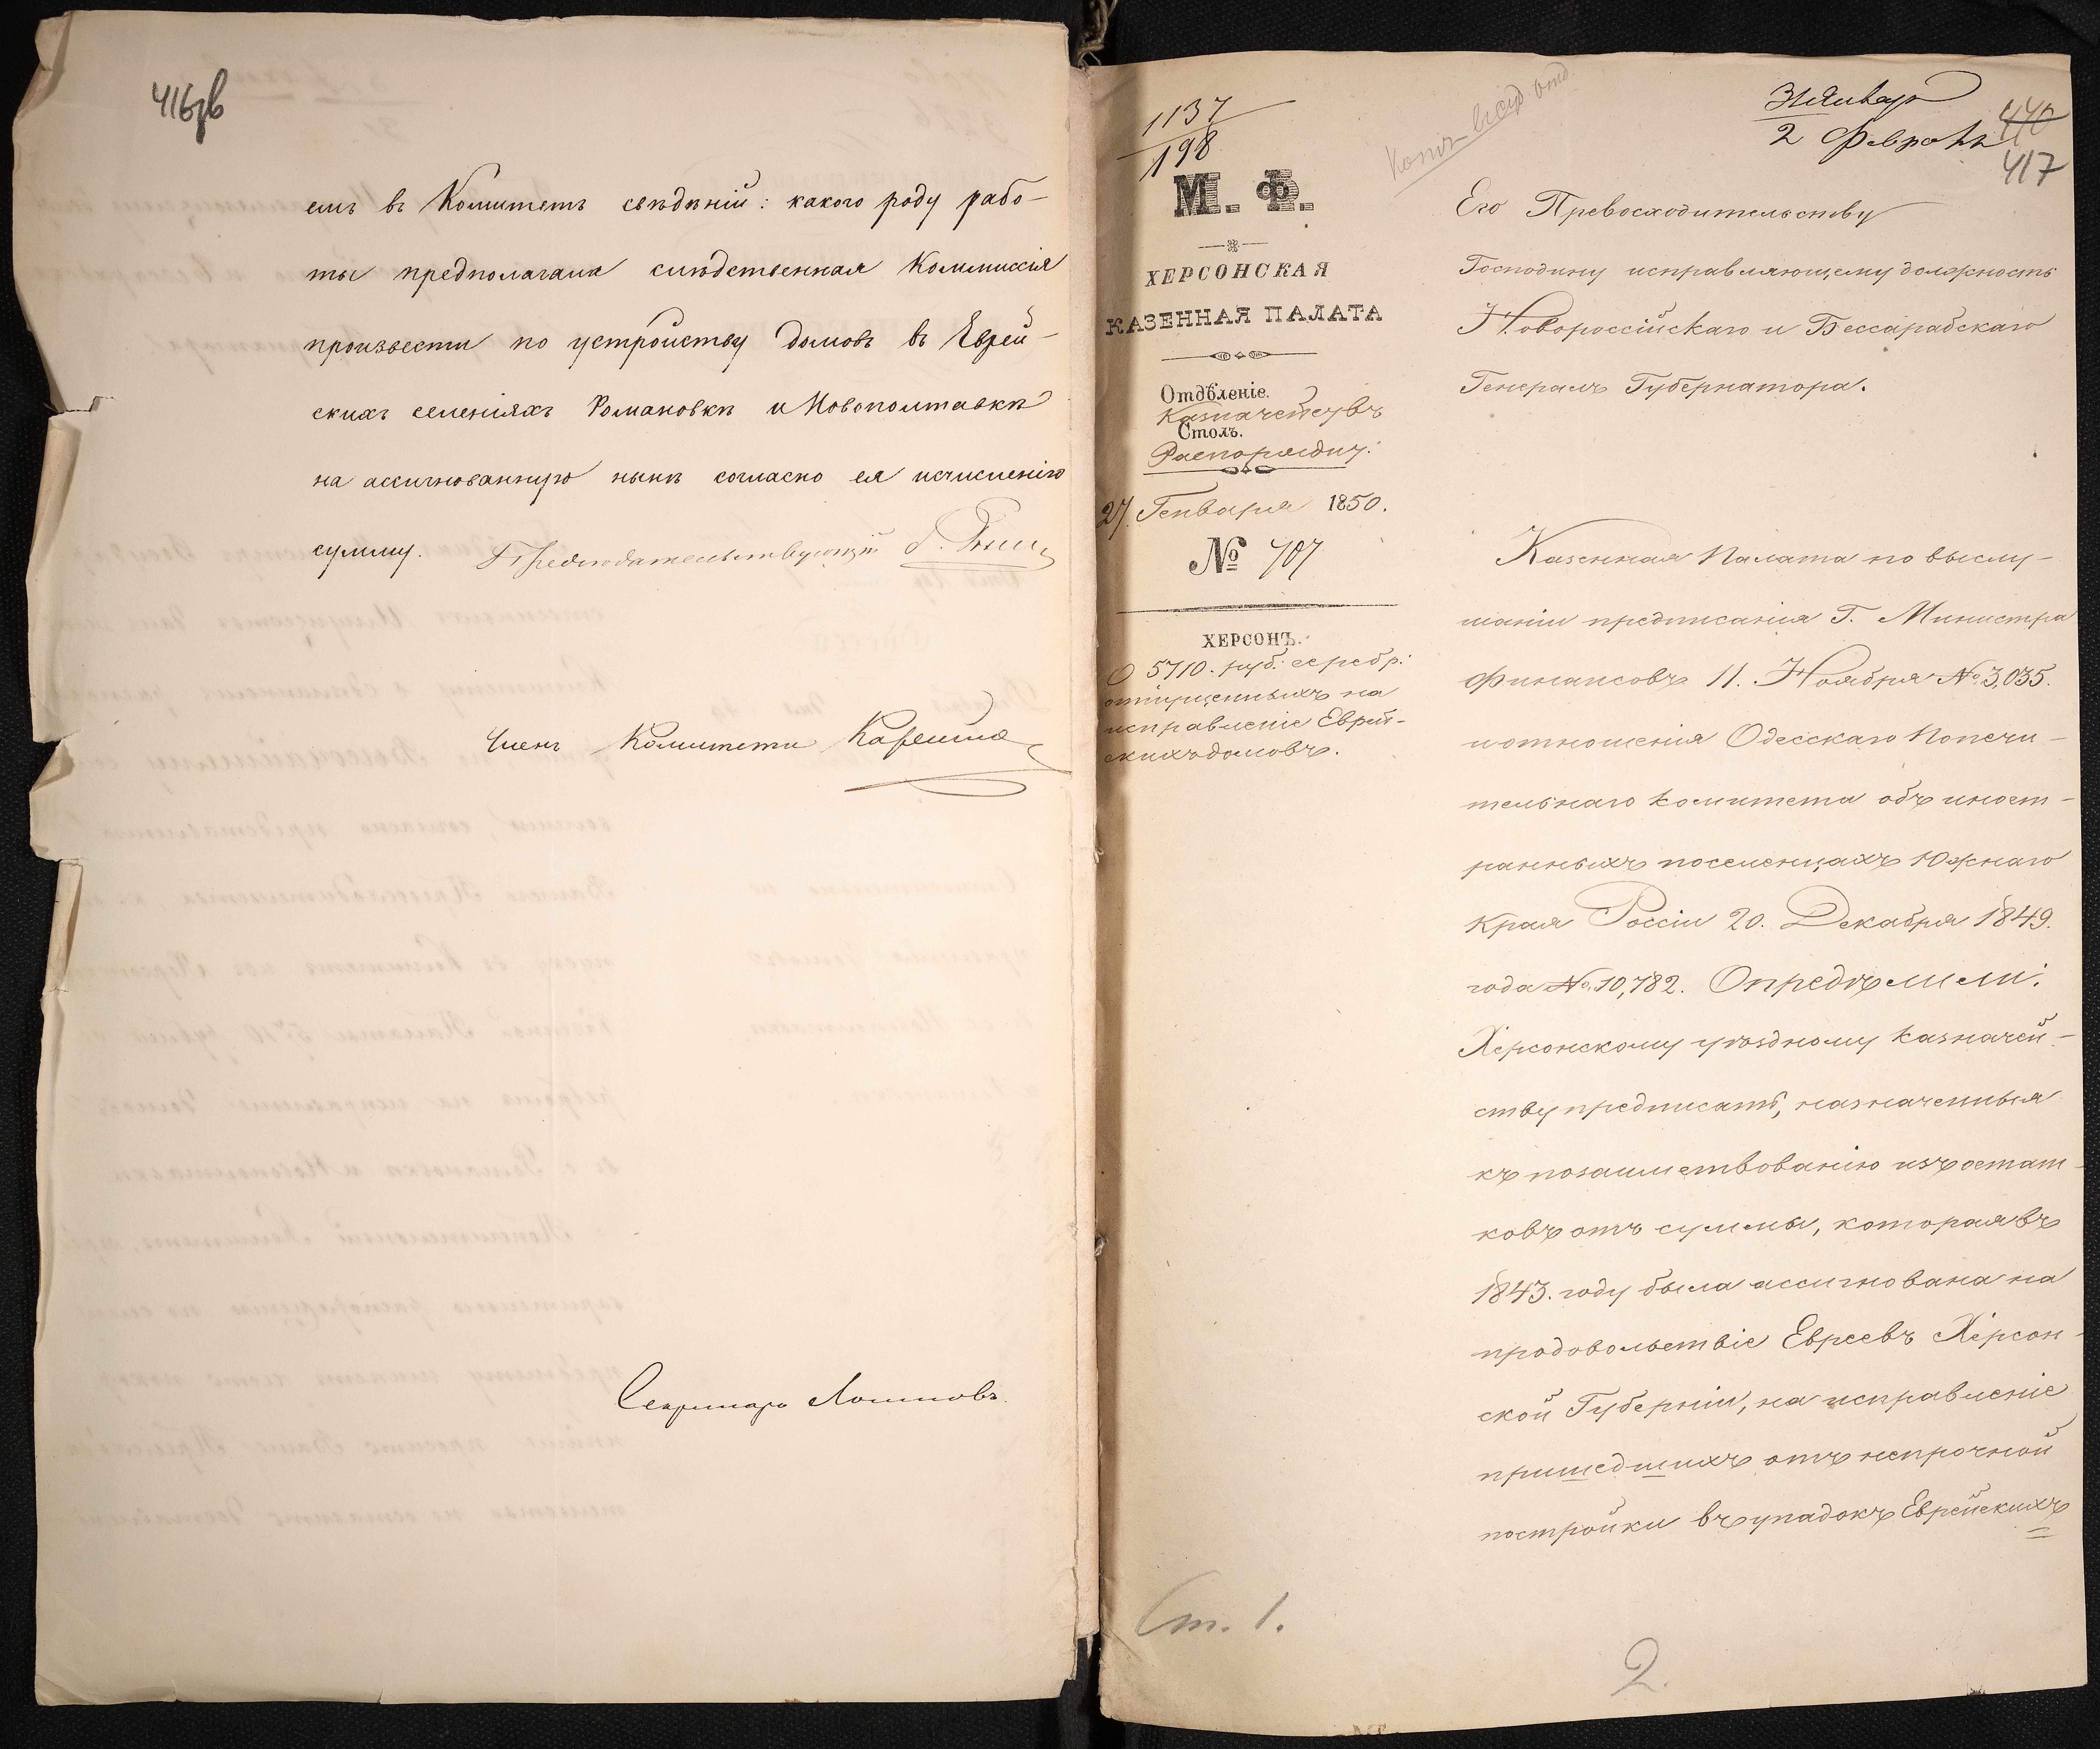 416об
емъ въ Комитетъ свѣдѣній: какого роду рабо-
ты предполагала слѣдственная Коммиссія
произвести по устройству домовъ въ Еврей-
скихъ селеніяхъ Романовкѣ и Новополтавкѣ
на ассигнованную нынѣ согласно ея исчисленію
сумму. Предсѣдательствующій
Членъ Комитета
Секретарь
1137
198
М. Ф.
ХЕРСОНСКАЯ
КАЗЕННАЯ ПАЛАТА
Отдѣленіе.
Казначействъ
Столъ.
Распорядит:
27. Генваря 1850.
№ 707
ХЕРСОНЪ.
О 5710. руб: серебр:
отпущенныхъ на
исправленіе Еврей-
скихъ домовъ.
31 Январ
2 Февраля
440
417
Его Превосходительству
Господину исправляющему должность
Новороссійскаго и Бессарабскаго
Генералъ Губернатора.
Казенная Палата по выслу-
шаніи предписанія Г. Министра
Финансовъ 11. Ноября № 3,035.
и отношенія Одесскаго Попечи-
тельнаго Комитета объ иност-
ранныхъ поселенцахъ Южнаго
Края Россіи 20. Декабря 1849.
года № 10,782. Опредѣлили:
Херсонскому уѣздному Казначей-
ству предписать, назначенныя
къ позаимствованію изъ остат-
ковъ отъ суммы, которая въ
1843. году была ассигнована на
продовольствіе Евреевъ Херсон-
ской Губерніи, на исправленіе
пришедшихъ отъ непрочной
постройки въ упадокъ Еврейскихъ
Ст. 1.
2.